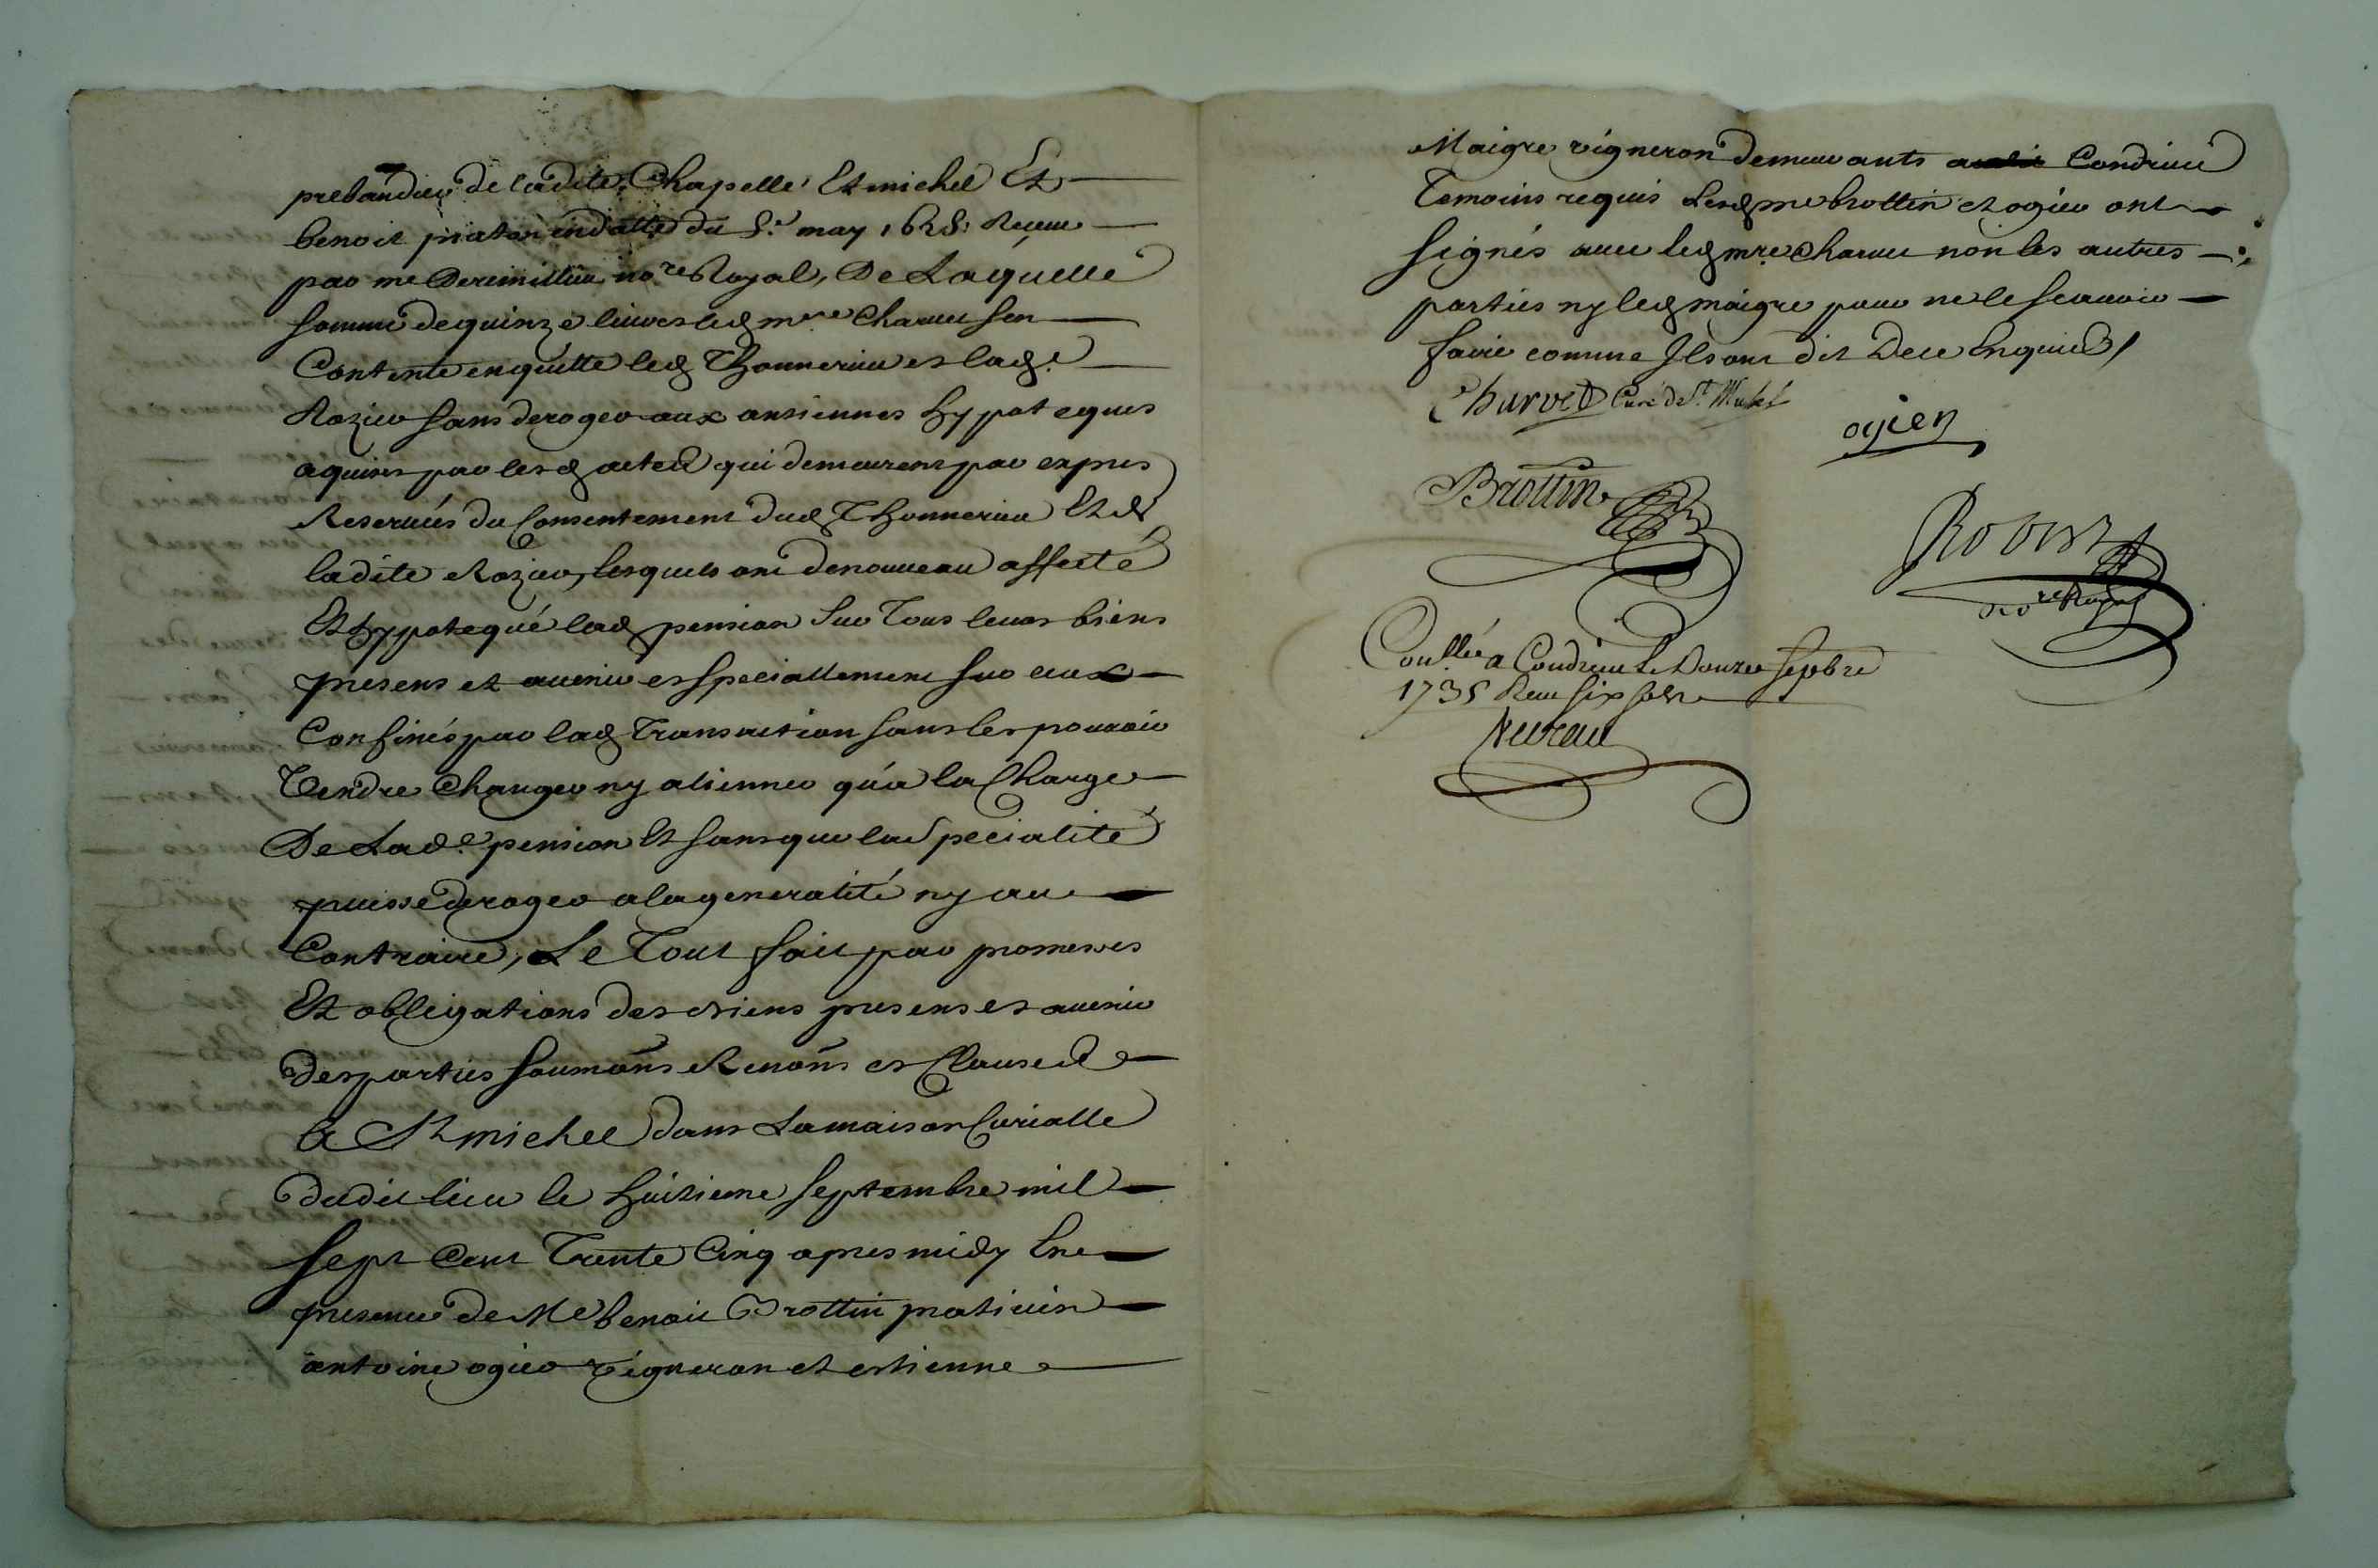 prebandier de ladite Chapelle Et michel Et
benoit priaton en datte du 8e may 1628: Receu
par me no.re Royal, De Laquelle
somme de quinze livres led mre Charvet sen
Contente en quitte led Thonnerieu et lad.e
Rozier sans deroger aux antiennes hypoteques
aquises par lesd actes qui demeurent par expres
Reservées du Consentement dud Thonnerieu Et de
ladite Rozier, lesquels ont denouveau affecté
Et hypotequé lad pension sur Tous leurs biens
presens et avenir et speciallement sur ceux
Confinés par lad Transaction sans les pouvoir
Vendre Changer ny alienner qu'a la Charge
De Lad.e pension Et sans que la Specialité
puisse deroger a la generalité ny au
Contraire, Le Tout fait par promesses
Et obligations des biens presens et avenir
des parties soumons Renons et Clauses
A St michel dans La maison Curialle
dudit lieu le huitieme septembre mil
sept Cent Trente Cinq apres midy En
presence de Me benoit Brottin praticien
antoine ogier vigneron et estienne
Maigre vigneron demeurants Condrieu
Temoins requis Lesd me brottin et ogier ont
signés avec led mre Charvet non les autres
parties ny led maigre pour ne le scavoir
faire comme Ils ont dit De ce Enquis /
Charvet Curé de St. Michel
ogier
Brottin
Robert
no re Royal
Conllée a Condrieu Le Douze sepbre
1735 Receu six sols